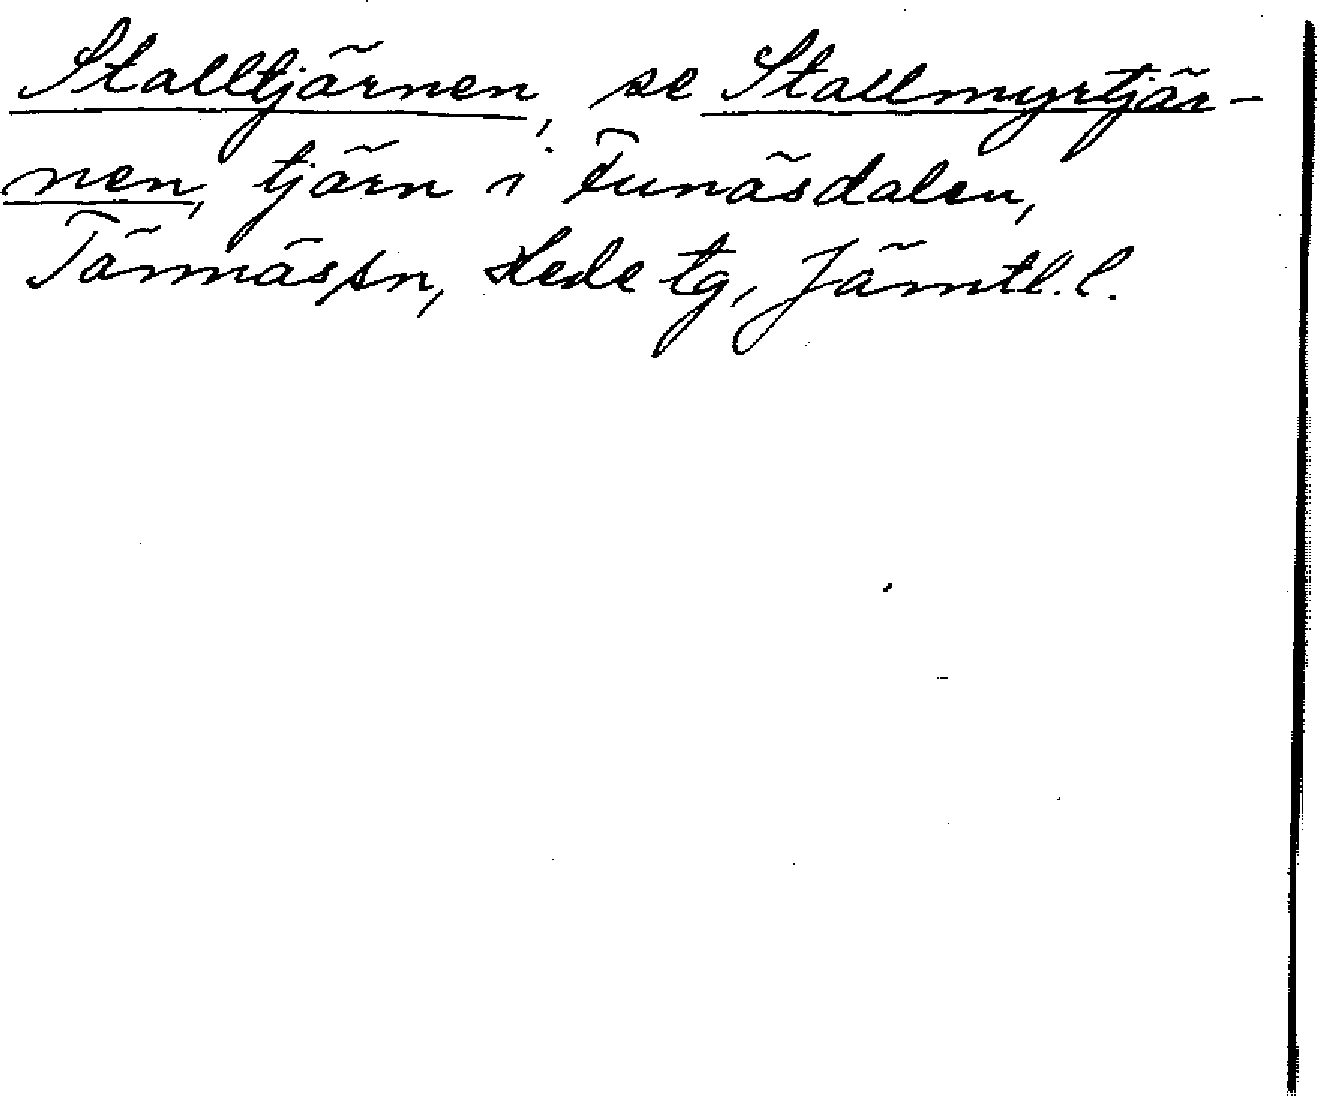 Stalltjärnen, se Stallmyrtjär-
nen, tjärn i Funäsdalen,
Tännäs sn, Hede tg, Jämtl. l.